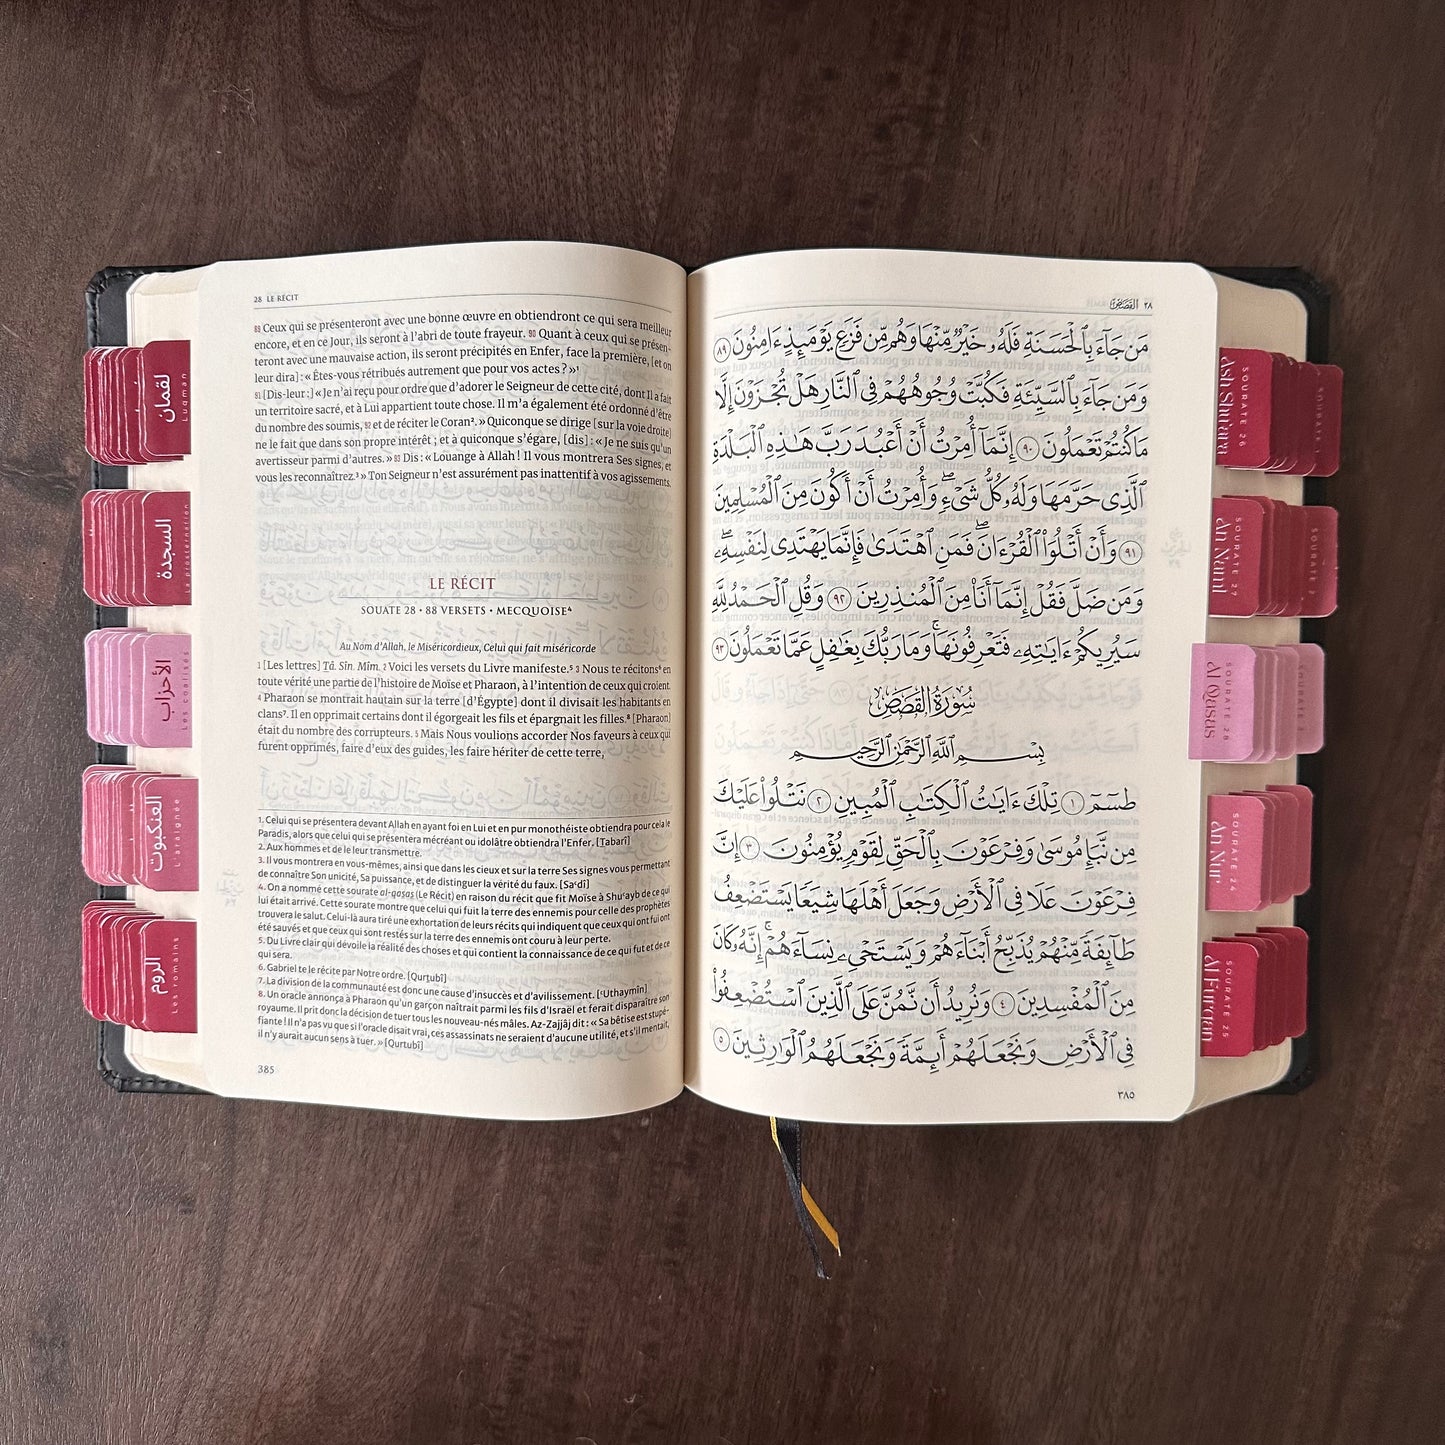 28 LE RÉCIT
88 Ceux qui se présenteront avec une bonne œuvre en obtiendront ce qui sera meilleur
encore, et en ce Jour, ils seront à l'abri de toute frayeur. 90 Quant à ceux qui se présen-
teront avec une mauvaise action, ils seront précipités en Enfer, face la première, [et on
leur dira] : « Êtes-vous rétribués autrement que pour vos actes ? »¹
91 [Dis-leur :] « Je n'ai reçu pour ordre que d'adorer le Seigneur de cette cité, dont Il a fait
un territoire sacré, et à Lui appartient toute chose. Il m'a également été ordonné d'être
du nombre des soumis, 92 et de réciter le Coran². » Quiconque se dirige [sur la voie droite]
ne le fait que dans son propre intérêt ; et à quiconque s'égare, [dis] : « Je ne suis qu'un
avertisseur parmi d'autres. » 93 Dis : « Louange à Allah ! Il vous montrera Ses signes, et
vous les reconnaîtrez.³ » Ton Seigneur n'est assurément pas inattentif à vos agissements.
LE RÉCIT
SOUATE 28 • 88 VERSETS • MECQUOISE⁴
Au Nom d'Allah, le Miséricordieux, Celui qui fait miséricorde
1 [Les lettres] Tâ. Sîn. Mîm. 2 Voici les versets du Livre manifeste.⁵ 3 Nous te récitons⁶ en
toute vérité une partie de l'histoire de Moïse et Pharaon, à l'intention de ceux qui croient.
4 Pharaon se montrait hautain sur la terre [d'Égypte] dont il divisait les habitants en
clans⁷. Il en opprimait certains dont il égorgeait les fils et épargnait les filles.⁸ [Pharaon]
était du nombre des corrupteurs. 5 Mais Nous voulions accorder Nos faveurs à ceux qui
furent opprimés, faire d'eux des guides, les faire hériter de cette terre,
1. Celui qui se présentera devant Allah en ayant foi en Lui et en pur monothéiste obtiendra pour cela le
Paradis, alors que celui qui se présentera mécréant ou idolâtre obtiendra l'Enfer. [Ṭabarî]
2. Aux hommes et de leur transmettre.
3. Il vous montrera en vous-mêmes, ainsi que dans les cieux et sur la terre Ses signes vous permettant
de connaître Son unicité, Sa puissance, et de distinguer la vérité du faux. [Sa'dî]
4. On a nommé cette sourate al-qasas (Le Récit) en raison du récit que fit Moïse à Shu'ayb de ce qui
lui était arrivé. Cette sourate montre que celui qui fuit la terre des ennemis pour celle des prophètes
trouvera le salut. Celui-là aura tiré une exhortation de leurs récits qui indiquent que ceux qui ont fui ont
été sauvés et que ceux qui sont restés sur la terre des ennemis ont couru à leur perte.
5. Du Livre clair qui dévoile la réalité des choses et qui contient la connaissance de ce qui fut et de ce
qui sera.
6. Gabriel te le récite par Notre ordre. [Qurṭubî]
7. La division de la communauté est donc une cause d'insuccès et d'avilissement. ['Uthaymîn]
8. Un oracle annonça à Pharaon qu'un garçon naîtrait parmi les fils d'Israël et ferait disparaître son
royaume. Il prit donc la décision de tuer tous les nouveau-nés mâles. Az-Zajjâj dit : « Sa bêtise est stupé-
fiante ! Il n'a pas vu que si l'oracle disait vrai, ces assassinats ne seraient d'aucune utilité, et s'il mentait,
il n'y aurait aucun sens à tuer. » [Qurtubî]
385
٢٨ القَصَص
مَن جَآءَ بِٱلْحَسَنَةِ فَلَهُۥ خَيْرٌ مِّنْهَا وَهُم مِّن فَزَعٍ يَوْمَئِذٍ ءَامِنُونَ ٨٩
وَمَن جَآءَ بِٱلسَّيِّئَةِ فَكُبَّتْ وُجُوهُهُمْ فِى ٱلنَّارِ هَلْ تُجْزَوْنَ إِلَّا
مَا كُنتُمْ تَعْمَلُونَ ٩٠ إِنَّمَآ أُمِرْتُ أَنْ أَعْبُدَ رَبَّ هَٰذِهِ ٱلْبَلْدَةِ
ٱلَّذِى حَرَّمَهَا وَلَهُۥ كُلُّ شَىْءٍ ۖ وَأُمِرْتُ أَنْ أَكُونَ مِنَ ٱلْمُسْلِمِينَ
٩١ وَأَنْ أَتْلُوَا۟ ٱلْقُرْءَانَ ۖ فَمَنِ ٱهْتَدَىٰ فَإِنَّمَا يَهْتَدِى لِنَفْسِهِۦ ۖ
وَمَن ضَلَّ فَقُلْ إِنَّمَآ أَنَا۠ مِنَ ٱلْمُنذِرِينَ ٩٢ وَقُلِ ٱلْحَمْدُ لِلَّهِ
سَيُرِيكُمْ ءَايَٰتِهِۦ فَتَعْرِفُونَهَا ۚ وَمَا رَبُّكَ بِغَٰفِلٍ عَمَّا تَعْمَلُونَ ٩٣
سُورَةُ القَصَصِ
بِسْمِ ٱللَّهِ ٱلرَّحْمَٰنِ ٱلرَّحِيمِ
طسٓمٓ ١ تِلْكَ ءَايَٰتُ ٱلْكِتَٰبِ ٱلْمُبِينِ ٢ نَتْلُوا۟ عَلَيْكَ
مِن نَّبَإِ مُوسَىٰ وَفِرْعَوْنَ بِٱلْحَقِّ لِقَوْمٍ يُؤْمِنُونَ ٣ إِنَّ
فِرْعَوْنَ عَلَا فِى ٱلْأَرْضِ وَجَعَلَ أَهْلَهَا شِيَعًا يَسْتَضْعِفُ
طَآئِفَةً مِّنْهُمْ يُذَبِّحُ أَبْنَآءَهُمْ وَيَسْتَحْىِۦ نِسَآءَهُمْ ۚ إِنَّهُۥ كَانَ
مِنَ ٱلْمُفْسِدِينَ ٤ وَنُرِيدُ أَن نَّمُنَّ عَلَى ٱلَّذِينَ ٱسْتُضْعِفُوا۟
فِى ٱلْأَرْضِ وَنَجْعَلَهُمْ أَئِمَّةً وَنَجْعَلَهُمُ ٱلْوَٰرِثِينَ ٥
٣٨٥
لقمان
Luqman
السجدة
La prosternation
الأحزاب
Les coalisés
العنكبوت
L'araignée
الروم
Les romains
SOURATE 26
Ash Shu'ara
SOURATE 27
An Naml
SOURATE 28
Al Qasas
SOURATE 24
An Nur
SOURATE 25
Al Furqan